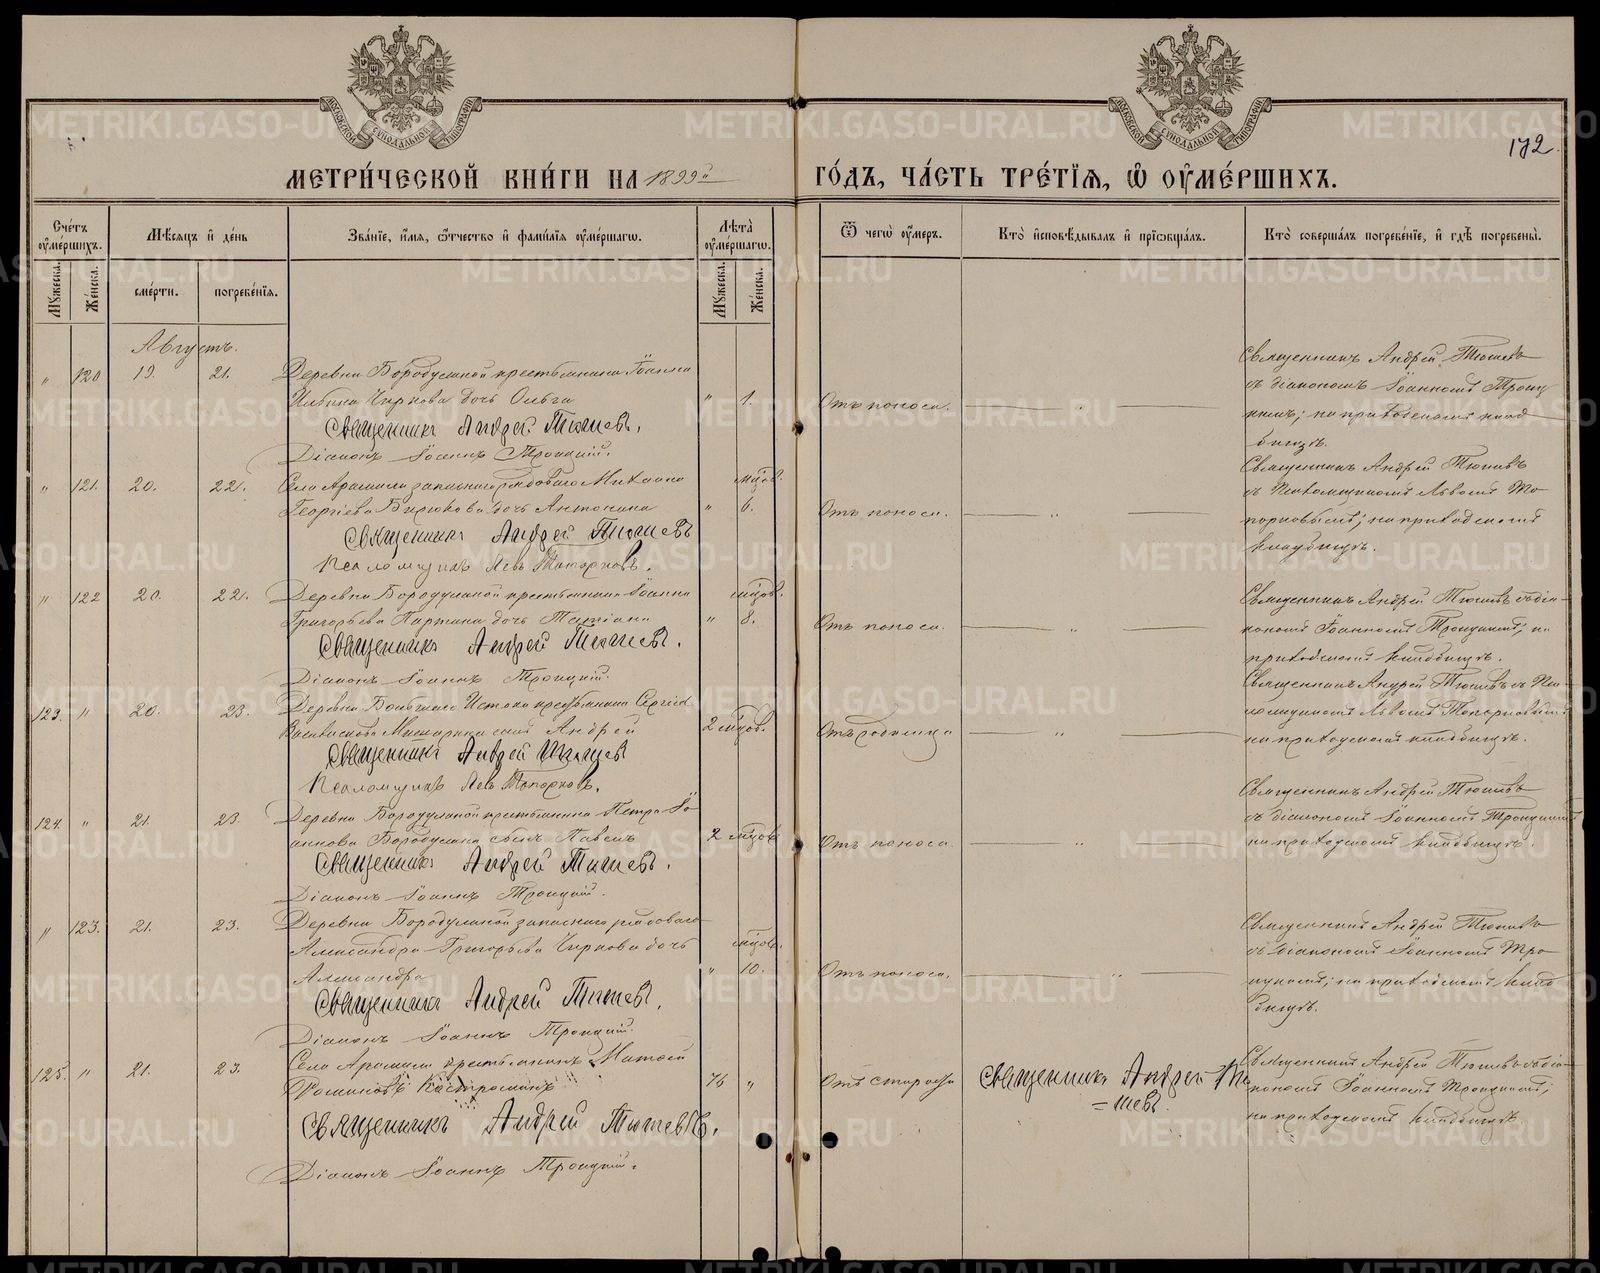 МЕТРИ́ЧЕСКОЙ КНИ́ГИ НА 1899й ГО́ДЪ, ЧА́СТЬ ТРЕ́ТІЯ, Ѡ ОУ҆МЕ́РШИХЪ.
172
Сче́тъ оумершихъ.
Мужеска.
Женска.
Мѣсяцъ и день
смерти.
погребенія.
Званіе, имя, отчество и фамилія оумершагѡ.
Лѣта оумершагѡ.
Мужеска.
Женска.
Ѿ чегѡ оумеръ.
Кто исповѣдывалъ и пріѡбщалъ.
Кто совершалъ погребеніе, и гдѣ погребены.
Августъ.
" 120 19. 21. Деревни Бородулиной крестьянина Іоанна
Ильина Чиркова дочь Ольга " 1. Отъ поноса.
Священникъ Андрей Тюшевъ.
Діаконъ Іоаннъ Троицкій.
Священникъ Андрей Тюшевъ
съ діакономъ Іоанномъ Троиц
кимъ; на приходскомъ клад
бищѣ.
" 121. 20. 22. Села Арамили запаснаго рядоваго Михаила мцов.
Георгіева Бирюкова дочь Антонина " 6. Отъ поноса.
Священникъ Андрей Тюшевъ
Псаломщикъ Левъ Топорковъ.
Священникъ Андрей Тюшевъ
съ Псаломщикомъ Львомъ То
порковымъ; на приходскомъ
кладбищѣ.
" 122 20. 22. Деревни Бородулиной крестьянина Іоанна мцов.
Григорьева дочь Татіана " 8. Отъ поноса.
Священникъ Андрей Тюшевъ.
Діаконъ Іоаннъ Троицкій.
Священникъ Андрей Тюшевъ съ діа-
кономъ Іоанномъ Троицкимъ; на
приходскомъ кладбищѣ.
123. " 20. 23. Деревни Большаго Истока крестьянина Сергія
сынъ Андрей 2 мцов. Отъ родимца
Священникъ Андрей Тюшевъ
Псаломщикъ Левъ Топорковъ.
Священникъ Андрей Тюшевъ съ Пса-
ломщикомъ Львомъ Топорковымъ
на приходскомъ кладбищѣ.
124. " 21. 23. Деревни Бородулиной крестьянина Петра Іо-
аннова Бородулина сынъ Павелъ 2 мцов Отъ поноса
Священникъ Андрей Тюшевъ.
Діаконъ Іоаннъ Троицкій.
Священникъ Андрей Тюшевъ
съ діакономъ Іоанномъ Троицкимъ
на приходскомъ кладбищѣ.
" 123. 21. 23. Деревни Бородулиной запаснаго рядоваго
Александра Григорьева Чиркова дочь мцов.
Александра " 10. Отъ поноса.
Священникъ Андрей Тюшевъ.
Діаконъ Іоаннъ Троицкій.
Священникъ Андрей Тюшевъ
съ діакономъ Іоанномъ Тро
ицкимъ; на приходскомъ клад
бищѣ.
125. " 21. 23. Села Арамили крестьянинъ Матѳей
Романовъ Костроминъ 76 " Отъ старости
Священникъ Андрей Тю
=шевъ.
Священникъ Андрей Тюшевъ.
Діаконъ Іоаннъ Троицкій.
Священникъ Андрей Тюшевъ съ діа-
кономъ Іоанномъ Троицкимъ;
на приходскомъ кладбищѣ.
METRIKI.GASO-URAL.RU